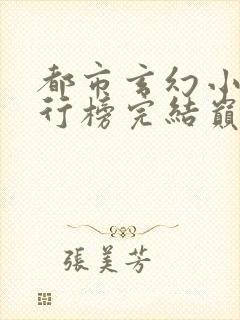 都市玄幻小
行榜完結巔
張美芳